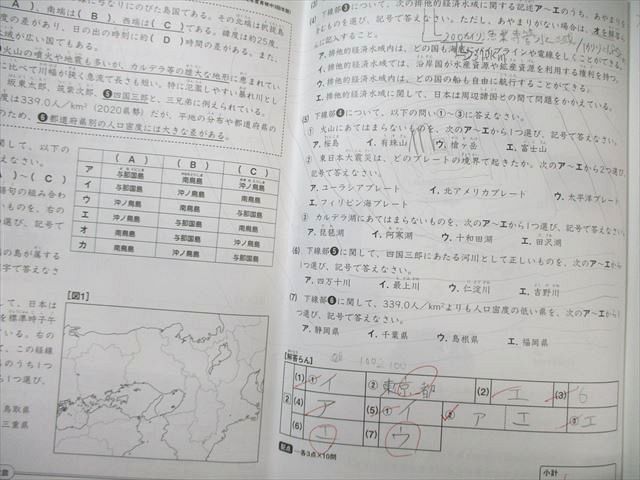 線になりのびた島国である。その北端は択捉島
(A)、南端は(B)、西端は(C)である。緯度は約25度、
度の差があり、日の出の時刻に約(D)時間の差がある。また、
水域が広い国でもある。
火山の噴火や地震も多いが、カルデラ等の雄大な地形に恵まれてい
に比べて川幅が狭く急流で長さも短い。特に氾濫しやすい暴れ川とし
坂東太郎、筑紫次郎、❺四国三郎と、三兄弟に例えられている。
度は339.0人/km²(2020県勢)だが、平地の分布や都道府県の
のため、❻都道府県別の人口密度には大きな差がある。
関して、以下の
(A) (B) (C)
ア 与那国島 南鳥島 沖ノ鳥島
イ 与那国島 沖ノ鳥島 南鳥島
ウ 沖ノ鳥島 南鳥島 与那国島
エ 沖ノ鳥島 与那国島 南鳥島
オ 南鳥島 与那国島 沖ノ鳥島
カ 南鳥島 沖ノ鳥島 与那国島
A)～(C)
語句の組み合わ
ものを、右の
選び、記号で
の島が属する
字で答えなさ
て、日本は
を標準時子午
ている。右の
て、この経線
のうち1つ
ら1つ選び、
鳥取県
三重県
[図1]
(3) について、次の排他的経済水域に関する記述ア～エのうち、あやまり
記号で答えなさい。ただし、あやまりがない場合は、オを解答ら
んに記入すること。
ア.排他的経済水域内は、どの国も海底にパイプラインや電線をしくことができる。
イ.排他的経済水域では、沿岸国が水産資源や鉱産資源を利用する権利を持つ。
ウ.排他的経済水域内は、どの国の船も自由に航行することができる。
エ.排他的経済水域に関して、日本は周辺諸国との間で問題をかかえている。
(5) 下線部❹について、以下の問い①～③に答えなさい。
① 火山にあてはまらないものを、次のア～エから1つ選び、記号で答えなさい。
ア.桜島 イ.有珠山 ウ.槍ヶ岳 エ.富士山
② 東日本大震災は、どのプレートの境界で起きたか。次のア～エから2つ選
び、記号で答えなさい。
ア.ユーラシアプレート イ.北アメリカプレート ウ.太平洋プレート
エ.フィリピン海プレート
③ カルデラ湖にあてはまらないものを、次のア～エから1つ選び、記号で答えなさい。
ア.琵琶湖 イ.阿寒湖 ウ.十和田湖 エ.田沢湖
(6) 下線部❺に関して、四国三郎にあたる河川として正しいものを、次のア～エから
1つ選び、記号で答えなさい。
ア.四万十川 イ.最上川 ウ.仁淀川 エ.吉野川
(7) 下線部❻に関して、339.0人/km²よりも人口密度の低い県を、次のア～エから1
つ選び、記号で答えなさい。
ア.静岡県 イ.千葉県 ウ.奈良県 エ.福岡県
[解答らん]
(1) ① イ ② 東京都 (2) エ (3) 6
2 (4) ア (5) ① イ ② ア エ ③ エ
(6) エ (7) ウ
配点 各3点×10問
小計